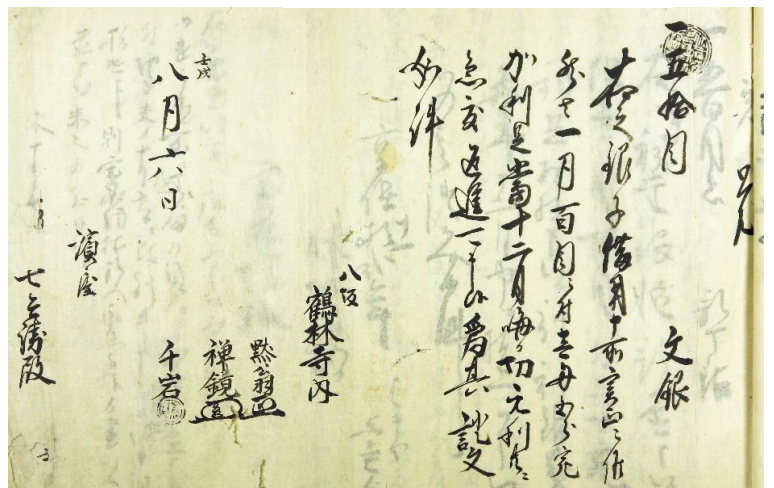 一五拾目 文銀
右之銀子借用申所実正也
然者一月百目ニ付壱匁五分宛
加利足当十二月晦日切元利共ニ
急度返進可申候為其証文
如件
八坂
鶴林寺内
黙翁
禅鏡
千岩
壬戌
八月十六日
濱屋
七兵衛殿